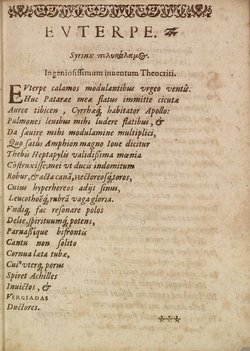 EVTERPE.
Syrinx πολυκάλαμος
Ingeniosissimum inuentum Theocriti.
EVterpe calamos modulantibus vrgeo ventis.
Huc Patarae mea flatus immitte cicuta
Aurae tibicen, Cyrrhaeq́; habitator Apollo:
Pulmones leuibus mihi ludere flatibus, &
Da suauire mihi modulamine multiplici,
Quo satus Amphion magno Ioue dicitur
Thebu Heptapylis validissima moenia
Construxisse: vt duci indomitum
Robur, &
Cuius hyperboreos adÿs sinus,
Leucothoëq́; rubra vaga gloria.
Vndiq; fac resonare polos
Delie, spirituumq́; potens,
Parnasique bifrontis
Cantu non solito
Cornua lata tubae,
Cuius vterq; porus
Spiret Achilles
Inuictos, &
VERGIADAS
Ductores.
***